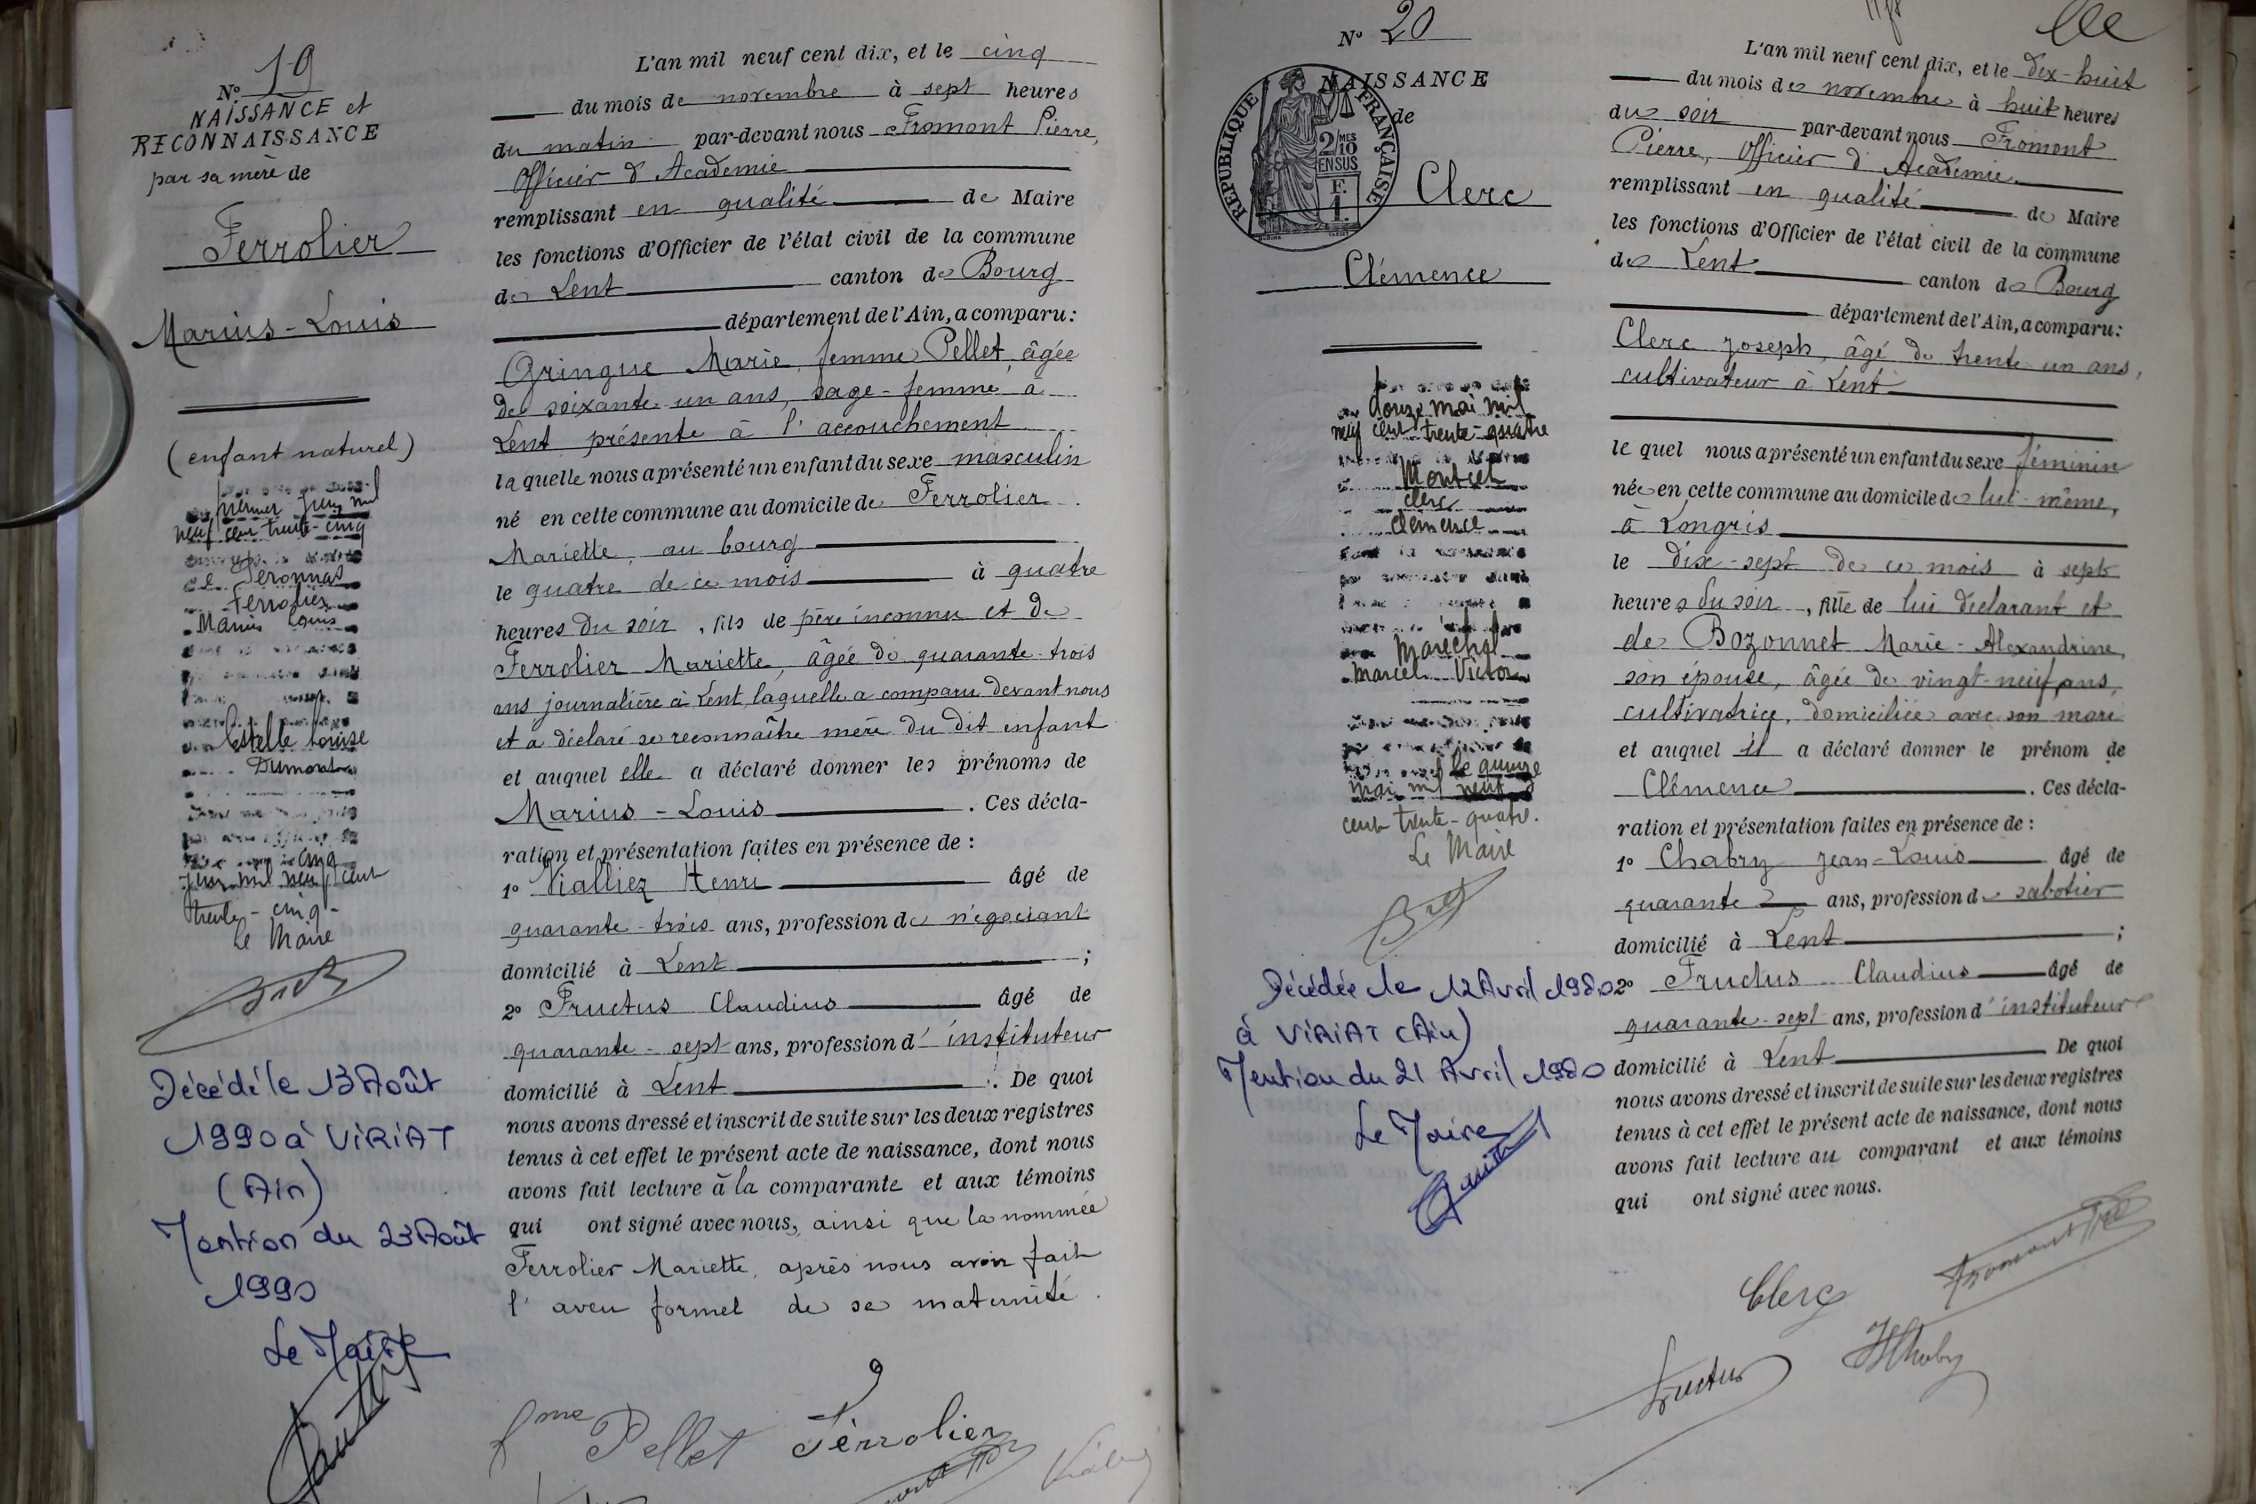 Nº 19
NAISSANCE et
RECONNAISSANCE
par sa mère de
Ferrolier
Marius-Louis
(enfant naturel)
premier Juin mil
neuf cent trente-cinq
Péronnas
Ferrolier
Marius Louis
Estelle Louise
Dumoulin
cinq
Juin mil neuf cent
trente-cinq-
Le Maire
Décédé le 13 Août
1990 à VIRIAT
(Ain)
Mention du 23 Août
1990
Le Maire
L'an mil neuf cent dix, et le cinq
du mois de novembre à sept heures
du matin par-devant nous Fromont Pierre,
Officier d'Académie
remplissant en qualité de Maire
les fonctions d'Officier de l'état civil de la commune
de Lent canton de Bourg
département de l'Ain, a comparu:
Gringue Marie, femme Pellet, âgée
de soixante un ans, sage-femme, à
Lent présente à l'accouchement
laquelle nous a présenté un enfant du sexe masculin
né en cette commune au domicile de Ferrolier
Mariette, au bourg
le quatre de ce mois à quatre
heures du soir, fils de père inconnu et de
Ferrolier Mariette, âgée de quarante-trois
ans journalière à Lent, laquelle a comparu devant nous
et a déclaré se reconnaître mère du dit enfant
et auquel elle a déclaré donner les prénoms de
Marius-Louis. Ces décla-
ration et présentation faites en présence de :
1º Vialliez Henri âgé de
quarante-trois ans, profession de négociant
domicilié à Lent ;
2º Fructus Claudius âgé de
quarante-sept ans, profession d'instituteur
domicilié à Lent. De quoi
nous avons dressé et inscrit de suite sur les deux registres
tenus à cet effet le présent acte de naissance, dont nous
avons fait lecture à la comparante et aux témoins
qui ont signé avec nous, ainsi que la nommée
Ferrolier Mariette, après nous avoir fait
l'aveu formel de sa maternité.
fme Pellet Ferrolier
Nº 20
NAISSANCE
de
RÉPUBLIQUE FRANÇAISE
2 MES
10
EN SUS
F.
1.
Clerc
Clémence
douze mai mil
neuf cent trente-quatre
Montcet
Clerc
Clémence
Maréchal
Marcel Victor
le quinze
mai mil neuf
cent trente-quatre.
Le Maire
Décédée le 12 Avril 1980
à VIRIAT (Ain)
Mention du 21 Avril 1980
Le Maire
L'an mil neuf cent dix, et le dix-huit
du mois de novembre à huit heures
du soir par-devant nous Fromont
Pierre, Officier d'Académie
remplissant en qualité de Maire
les fonctions d'Officier de l'état civil de la commune
de Lent canton de Bourg
département de l'Ain, a comparu:
Clerc Joseph, âgé de trente un ans,
cultivateur à Lent
lequel nous a présenté un enfant du sexe féminin
née en cette commune au domicile de lui-même,
à Longris
le dix-sept de ce mois à sept
heures du soir, fille de lui déclarant et
de Bozonnet Marie-Alexandrine,
son épouse, âgée de vingt-neuf ans,
cultivatrice, domiciliée avec son mari
et auquel il a déclaré donner le prénom de
Clémence. Ces décla-
ration et présentation faites en présence de :
1º Chabry Jean-Louis âgé de
quarante ans, profession de sabotier
domicilié à Lent ;
2º Fructus Claudius âgé de
quarante-sept ans, profession d'instituteur
domicilié à Lent De quoi
nous avons dressé et inscrit de suite sur les deux registres
tenus à cet effet le présent acte de naissance, dont nous
avons fait lecture au comparant et aux témoins
qui ont signé avec nous.
Clerc
Fromont
Fructus
Chabry